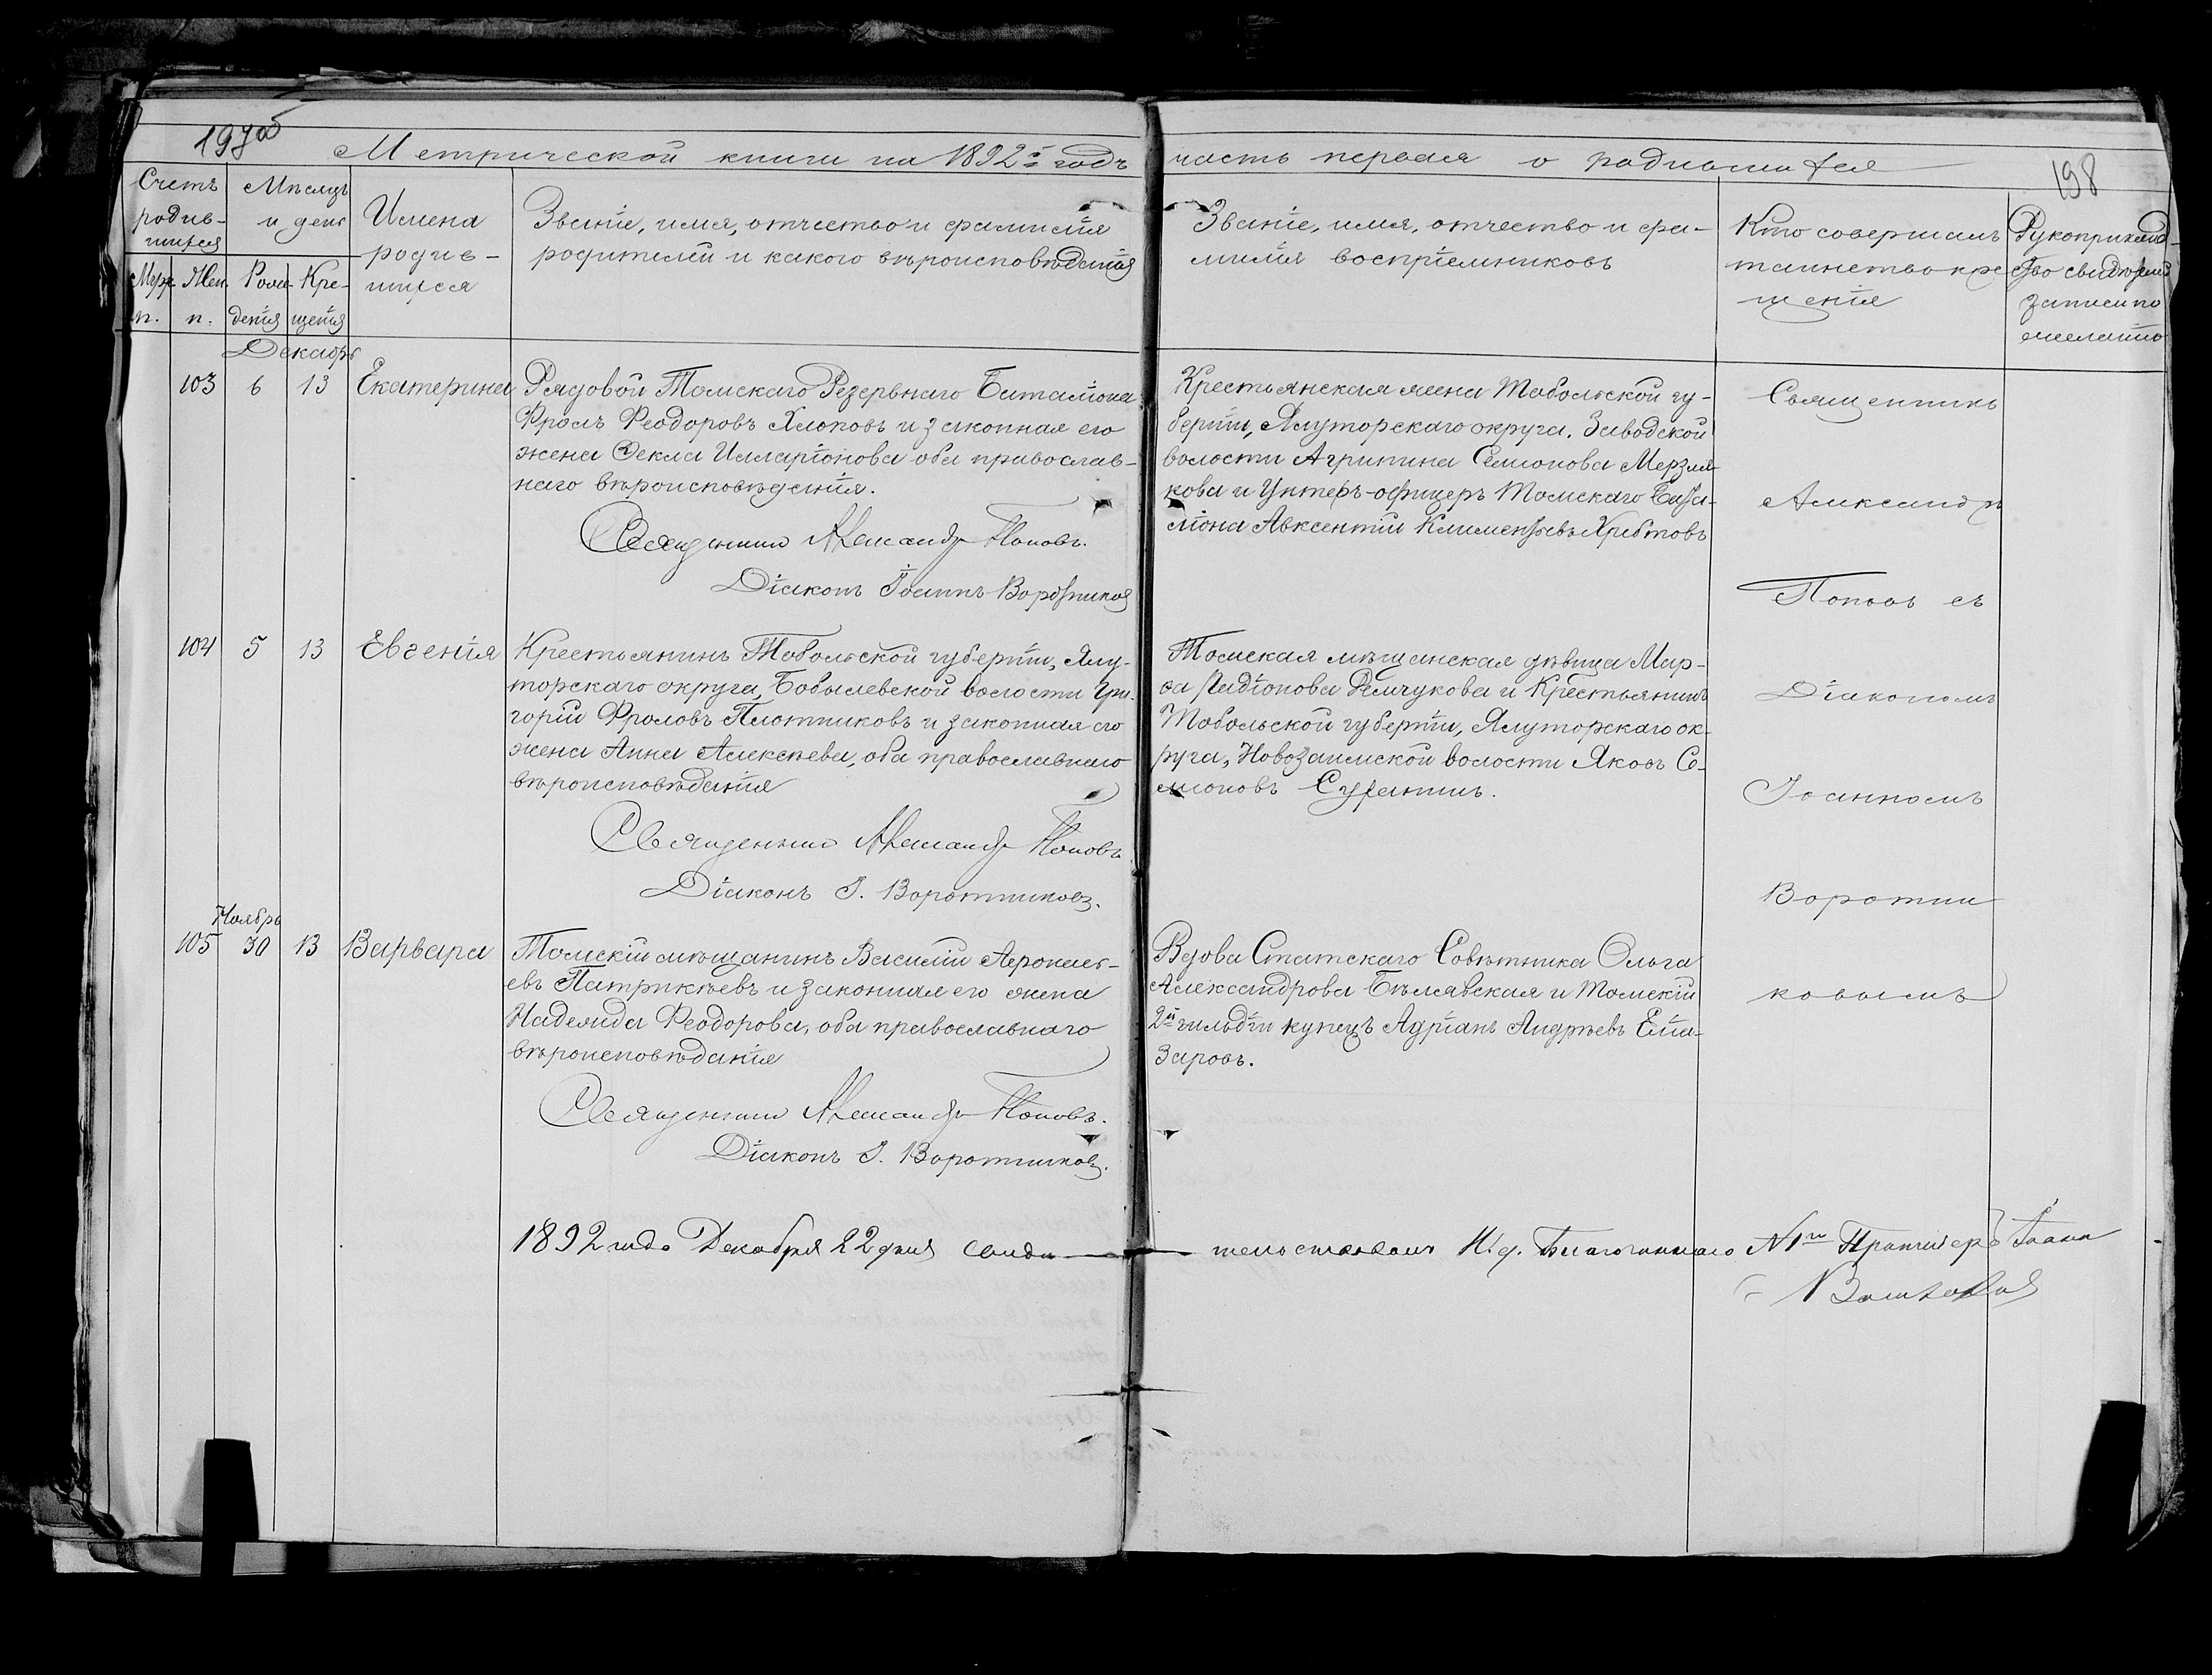 197об
Метрической книги на 1892й годъ часть первая о родившихся
198
Счетъ родив-
шихся
Муж. п.
Жен. п.
Мѣсяцъ и день
Рож-
дения
Кре-
щенія
Имена
родив-
шихся
Званіе, имя, отчество и фамилія
родителей и какого вѣроисповѣданія
Званіе, имя, отчество и фа-
милія воспріемниковъ
Кто совершалъ
таинство кре
щенія
Рукоприклад-
ство свидѣтелей
записи по
желанію
Декабрь
103 6 13 Екатерина
Рядовой Томскаго Резервнаго Баталіона
Фролъ Феодоровъ Хлоповъ и законная его
жена Фекла Илларіонова оба православ-
наго вѣроисповѣданія.
Священникъ Александръ Поповъ.
Діаконъ Іоаннъ Воротниковъ
Крестьянская жена Тобольской гу-
берніи, Ялуторскаго округа, Заводской
волости Агрипина Семионова Мерзля-
кова и Унтеръ-офицеръ Томскаго Бата-
ліона Авксентій Климентьевъ
104 5 13 Евгенія
Крестьянинъ Тобольской губерніи, Ялу-
торскаго округа, Бобылевской волости Гри-
горій Фроловъ Плотниковъ и законная его
жена Анна Алексѣева, оба православнаго
вѣроисповѣданія
Священникъ Александръ Поповъ
Діаконъ І. Воротниковъ.
Томская мѣщанская дѣвица Мар-
ѳа Ладіонова Демчукова и Крестьянинъ
Тобольской губерніи, Ялуторскаго ок-
руга, Новозаимской волости Яковъ Се-
мионовъ
Ноябрь
105 30 13 Варвара
Томскій мѣщанинъ Василій
Патрикѣевъ и законная его жена
Надежда Феодорова, оба православнаго
вѣроисповѣданія
Священникъ Александръ Поповъ.
Діаконъ І. Воротниковъ.
Вдова Статскаго Совѣтника Ольга
Александрова Бѣлявская и Томскій
2й гильдіи купецъ Адріанъ Андрѣевъ Елиа-
заровъ.
Священникъ
Александръ
Поповъ съ
Діакономъ
Іоанномъ
Воротни
ковымъ
1892 года Декабря 22 дня свидѣтельствовалъ И. д. Благочиннаго №1го Протоіерей Іоаннъ